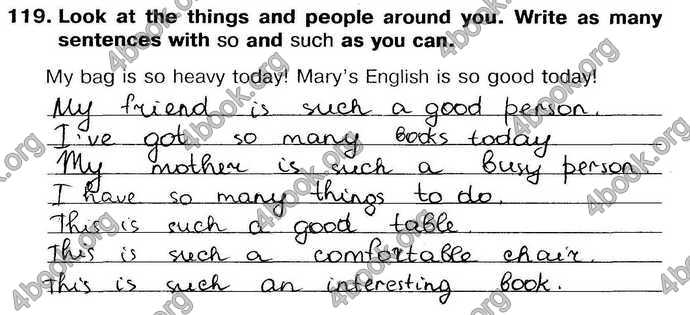 119. Look at the things and people around you. Write as many
sentences with so and such as you can.
My bag is so heavy today! Mary's English is so good today!
My friend is such a good person.
I've got so many books today
My mother is such a busy person
I have so many things to do.
This is such a good table.
This is such a comfortable chair.
This is such an interesting book.
4book.org
4book.org
4book.org
4book.org
4book.org
4book.org
4book.org